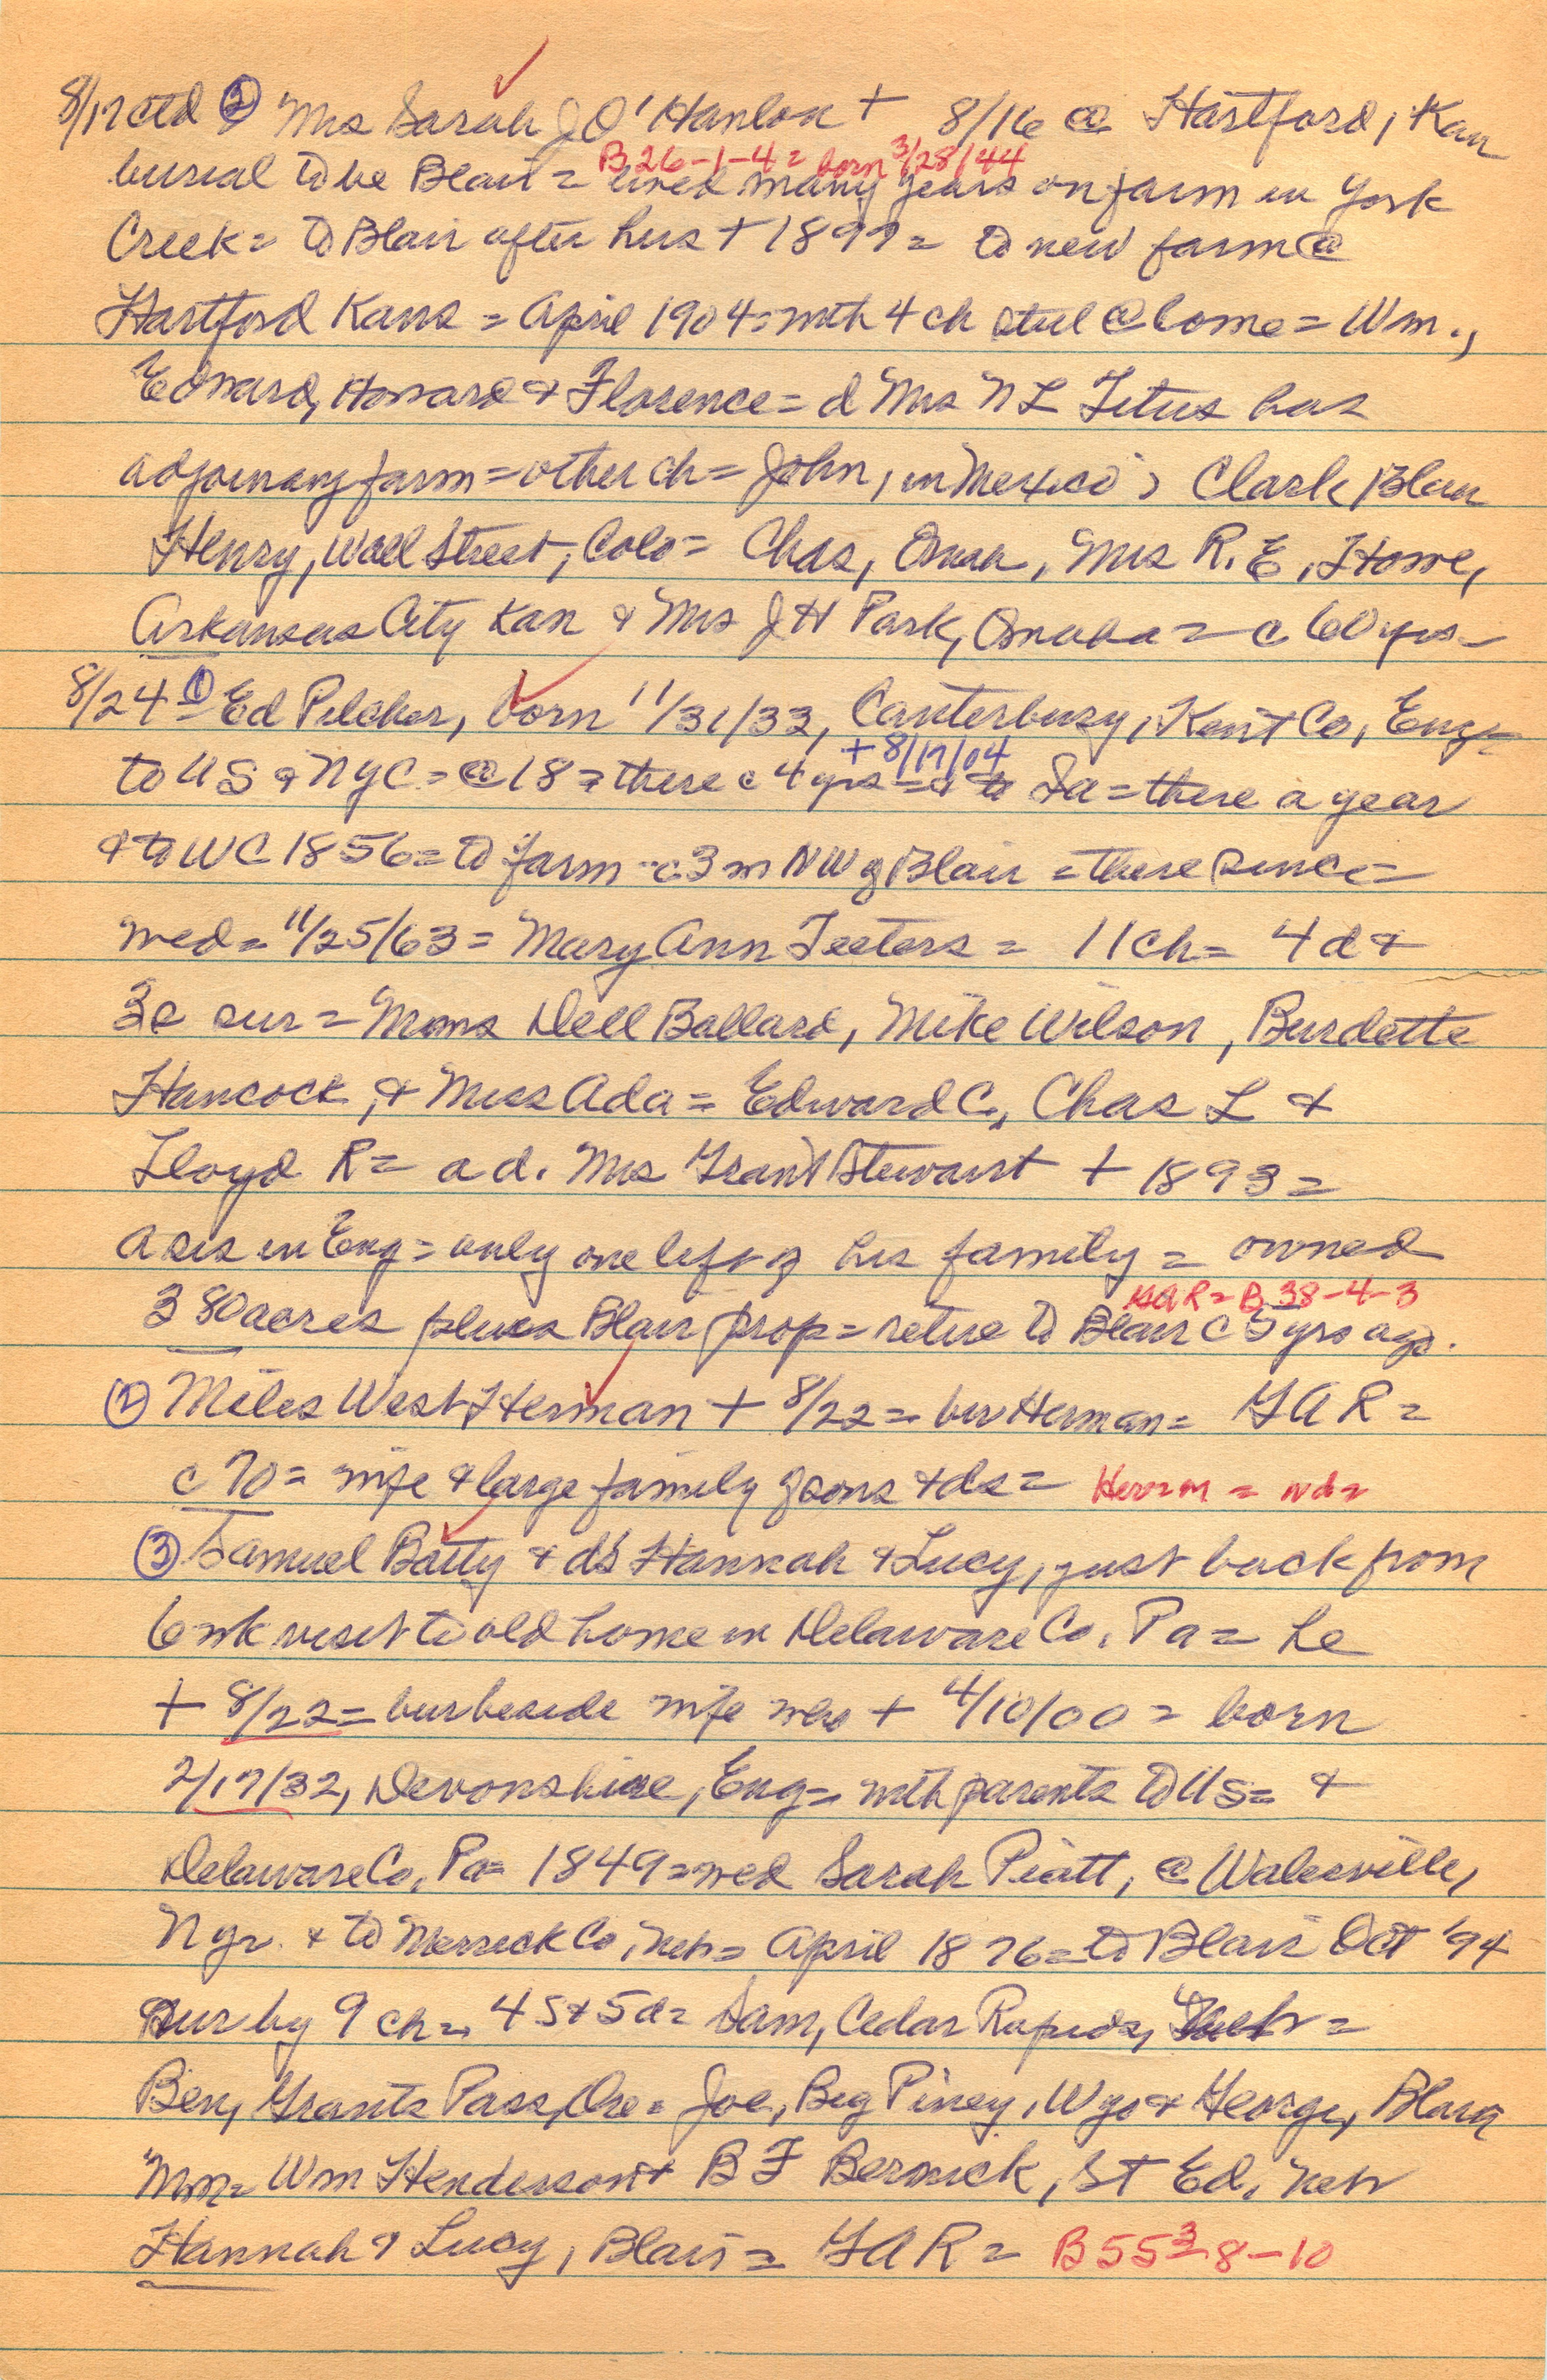 8/17 ctd ② Mrs Sarah J O'Hanlon + 8/16 @ Hartford, Kan
B 26-1-4 = born 3/28/44
burial to be Blair = lived many years on farm in York
Creek = to Blair after hus + 1899 = to new farm @
Hartford Kans = April 1904 = with 4 ch still @ home = Wm.,
Edward, Howard & Florence = d Mrs N L Titus has
adjoining farm = other ch = John, in Mexico, Clark, Blair
Henry, Wall Street, Colo = Chas, Omah, Mrs R. E. Howe,
Arkansas City Kan & Mrs J H Park, Omaha = c 60 yrs -
8/24 ① = Ed Pilcher, born 11/31/33, Canterbury, Kent Co, Eng =
+ 8/17/04
to US & NYC = @ 18 = there c 4 yrs = & to Ia = there a year
& to WC 1856 = to farm c 3 m NW of Blair = there since =
wed = 11/25/63 = Mary Ann Teeters = 11 ch = 4 d &
3 s sur = Mmes Dell Ballard, Mike Wilson, Burdette
Hancock, & Miss Ada = Edward C, Chas L &
Lloyd R = a d. Mrs Grant Stewart + 1893 =
a sis in Eng = only one left of his family = owned
GAR = B 38-4-3
380 acres plus Blair prop = retire to Blair c 5 yrs ago.
② Miles West Herman + 8/22 = bur Herman = GAR =
c 70 = wife & large family of sons & ds = Herm = nd =
③ Samuel Batty & d's Hannah & Lucy, just back from
6 wk visit to old home in Delaware Co, Pa = he
+ 8/22 = bur beside wife who + 4/10/00 = born
2/17/32, Devonshire, Eng = with parents to US = &
Delaware Co, Pa = 1849 = wed Sarah Piatt, @
& to Merrick Co, Neb = April 1876 = to Blair Oct '94
Sur by 9 ch = 4 s & 5 d = Sam, Cedar Rapids, Neb =
Ben, Grants Pass, Ore = Joe, Big Piney, Wyo & George, Blair
Mm = Wm Henderson & B F Bernick, St Ed, Neb
Hannah & Lucy, Blair = GAR = B 55 3-8-10